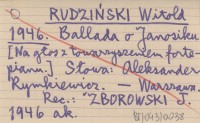 RUDZIŃSKI Witold
1946. Ballada o Janosiku
[Na głos z towarzyszeniem forte-
pianu.] Słowa: Aleksander
Rymkiewicz. — Warszawa.
Rec.: "ZBOROWSKI J.
1946 ak.